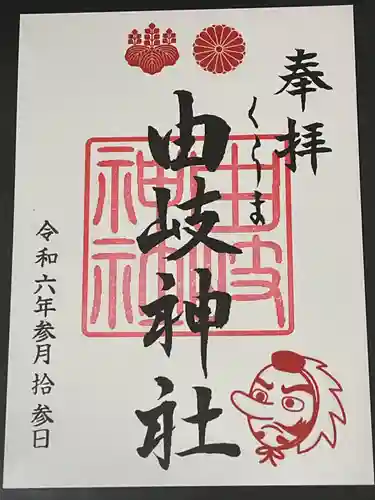 奉拝
くらま
由岐神社
由岐神社
令和六年参月拾参日